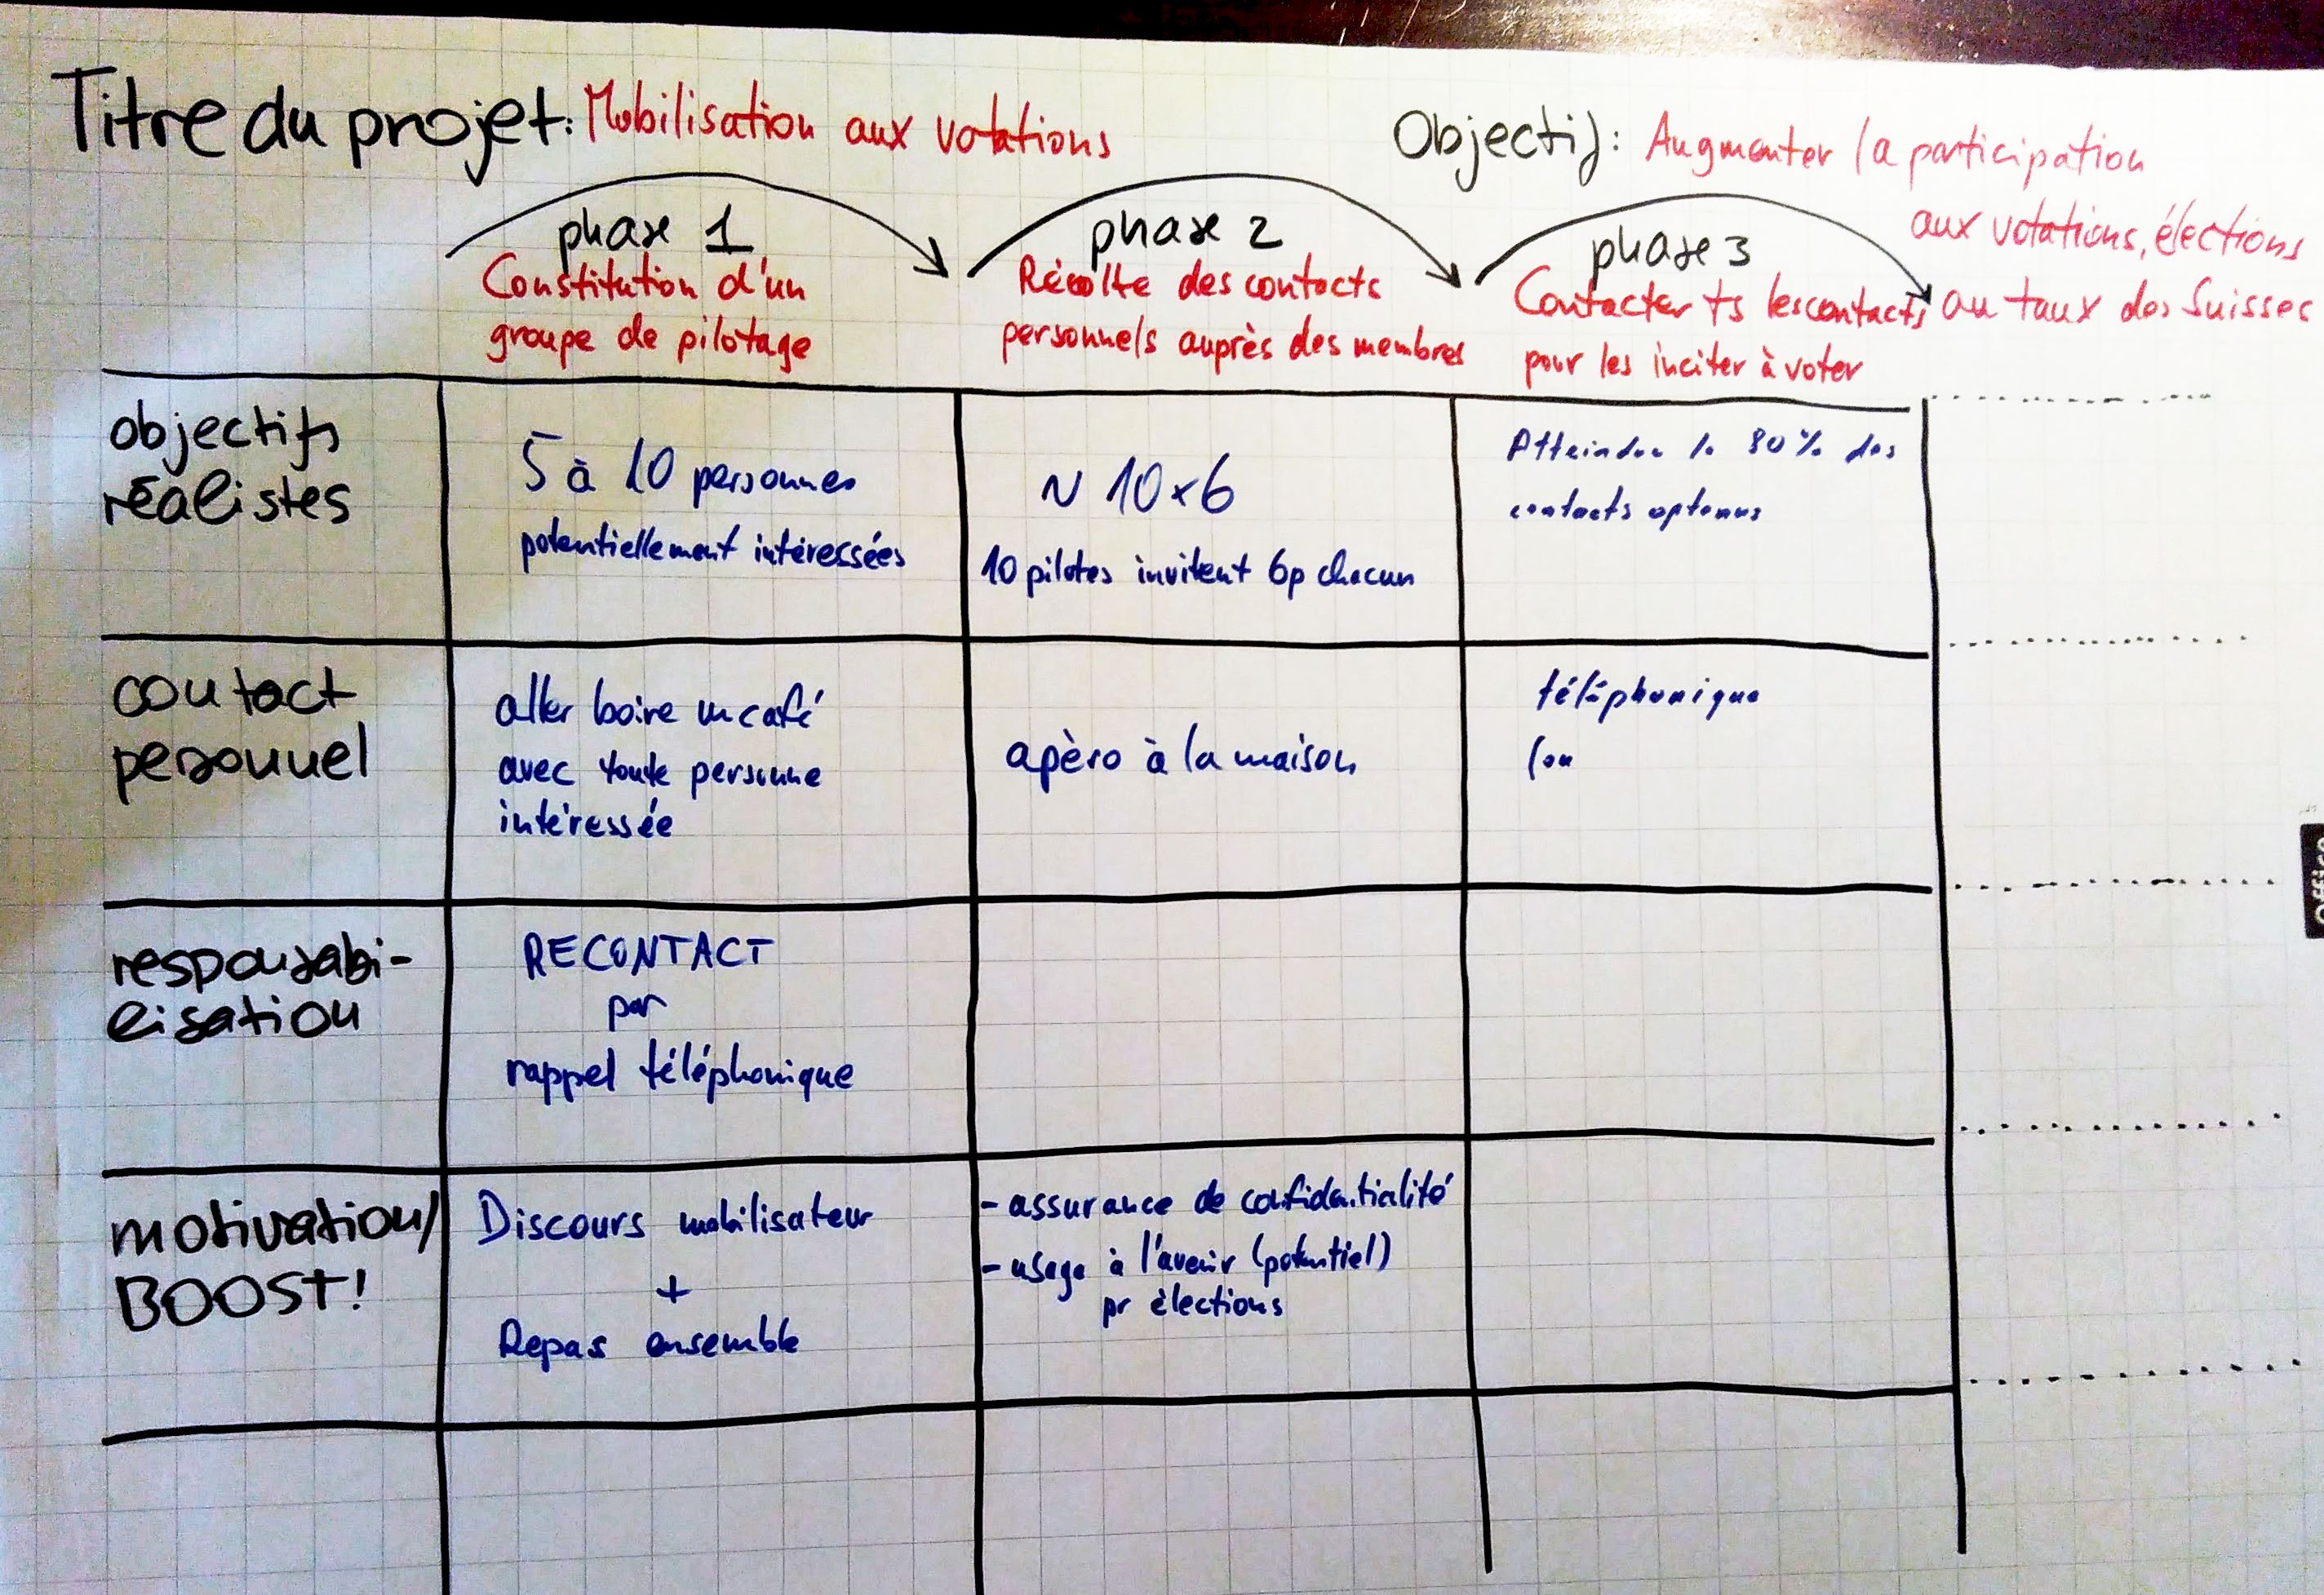 Titre du projet: Mobilisation aux votations
Objectif: Augmenter la participation
aux votations, élections
au taux des Suisses
phase 1
Constitution d'un
groupe de pilotage
phase 2
Récolte des contacts
personnels auprès des membres
phase 3
Contacter ts les contacts
pour les inciter à voter
objectifs
réalistes
5 à 10 personnes
potentiellement intéressées
~ 10x6
10 pilotes invitent 6p chacun
Atteindre le 80% des
contacts optenus
contact
personnel
aller boire un café
avec toute personne
intéressée
apèro à la maison
téléphonique
responsabi-
lisation
RECONTACT
par
rappel téléphonique
motivation/
BOOST!
Discours mobilisateur
+
Repas ensemble
- assurance de confidentialité
- usage à l'avenir (potentiel)
pr élections
Office